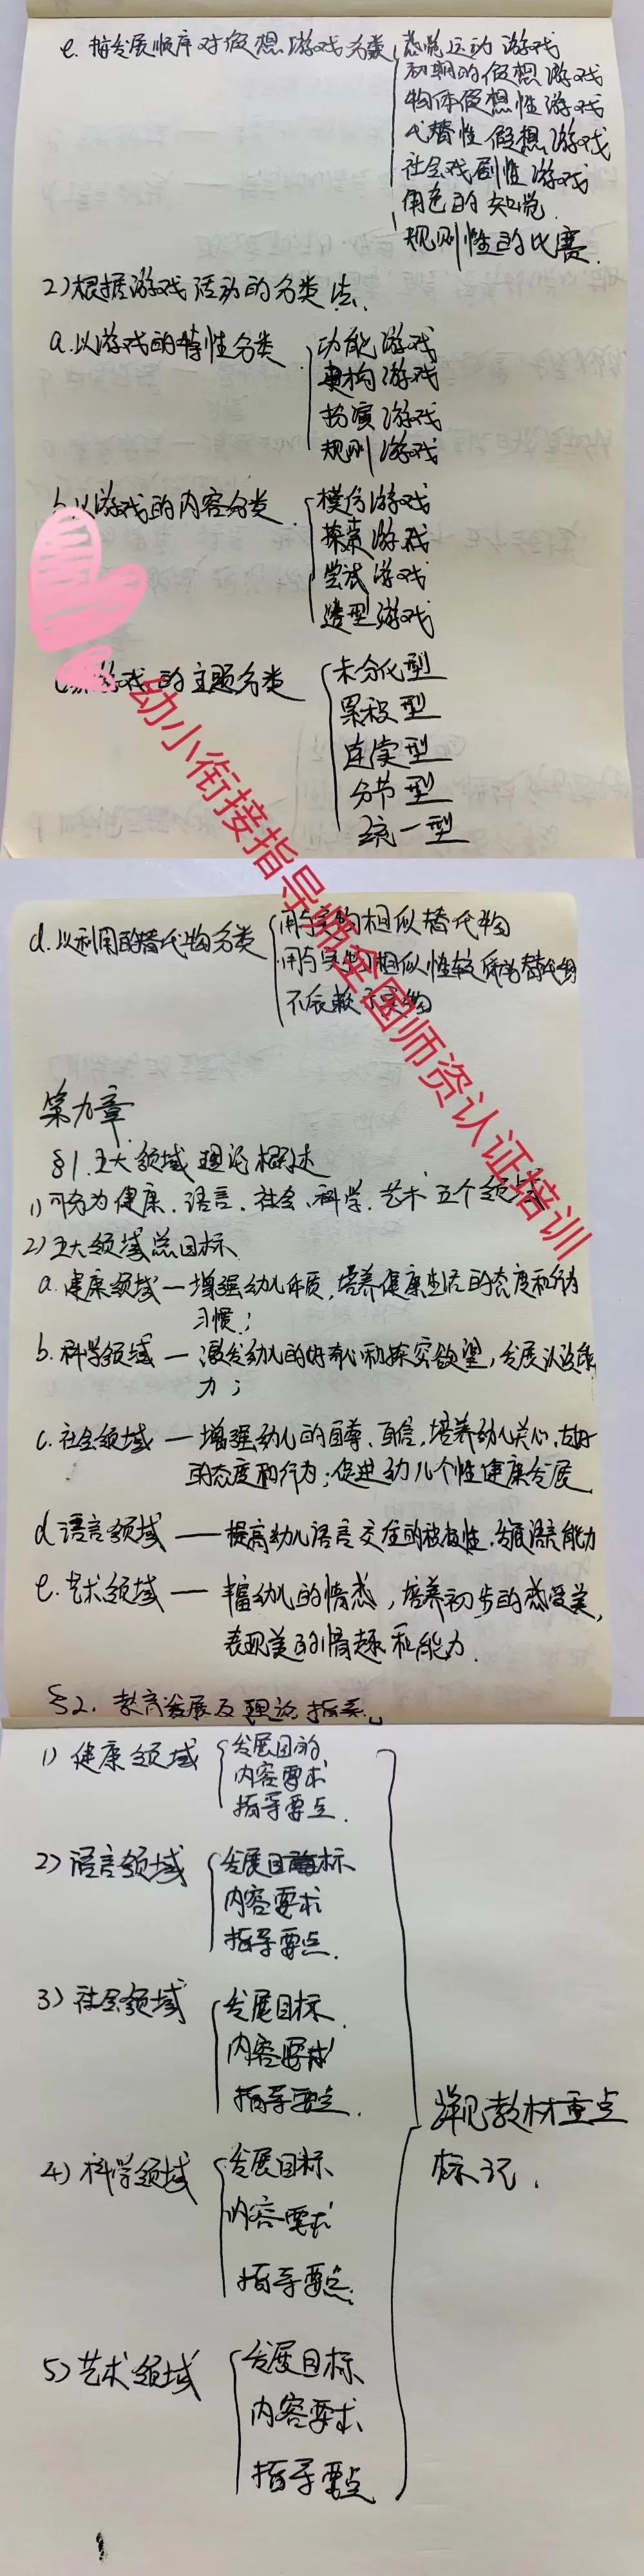 e. 按发展顺序对假想游戏分类
感觉运动游戏
初期的假想游戏
物体假想性游戏
代替性假想游戏
社会戏剧性游戏
角色的知觉
规则性的比赛.
2)根据游戏活动的分类法.
a.以游戏的特性分类
功能游戏
构游戏
扮演游戏
规则游戏
以游戏的内容分类
模仿游戏
探索游戏
尝试游戏
造型游戏
游戏的主题分类
未分化型
累积型
连续型
分节型
统一型
幼小衔接指导师全国师资认证培训
d.以利用的替代物分类
用与实物相似替代物
用与实物相似性较低的替代物
不依赖于实物
第九章
§1.五大领域理论概述
1)可分为健康.语言.社会.科学.艺术五个领域
2)五大领域总目标
a.健康领域—增强幼儿体质,培养健康生活的态度和行为
习惯;
b.科学领域—激发幼儿的好奇心和探究欲望,发展认识能
力;
c.社会领域—增强幼儿的自尊、自信,培养幼儿关心、友好
的态度和行为;促进幼儿个性健康发展
d.语言领域——提高幼儿语言交往的积极性,发展语言能力
e.艺术领域—丰富幼儿的情感,培养初步的感受美,
表现美的情趣和能力.
§2.教育发展及理论指系
1)健康领域
发展目的
内容要求
指导要点.
2)语言领域
发展目标
内容要求
指导要点.
3)社会领域
发展目标.
内容要求
指导要点.
详见教材重点
标记.
4)科学领域
发展目标
内容要求
指导要点.
5)艺术领域
发展目标
内容要求
指导要点